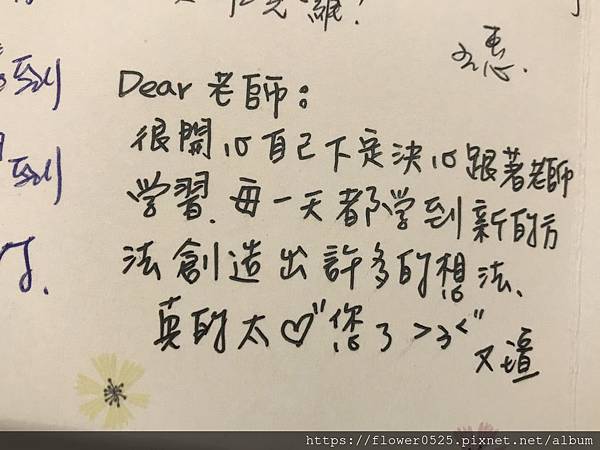 維!
到
惠.
Dear 老師:
很開心自己下定決心跟著老師
到
学習.每一天都学到新的方
法創造出許多的想法、
真的太♡"您了>3<"
又瑄
https://flower0525.pixnet.net/album